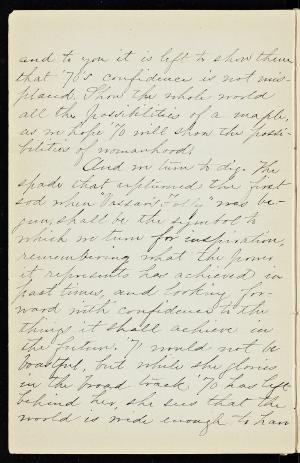 and to you it is left to show them
that '70's confidence is not mis-
placed. Show the whole world
all the possibilities of a maple,
as we hope '70 will show the possi-
bilities of womanhood.
And we turn to dig. The
spade that upturned the first
sod when "Vassar's Folly" was be-
gun, shall be the symbol to
which we turn for inspiration,
remembering what the power
it represents has achieved in
past times, and looking for-
ward with confidence to the
things it shall achieve in
the future. '71 would not be
boastful, but while she glories
in the broad track '70 has left
behind her, she sees that the
world is wide enough to have